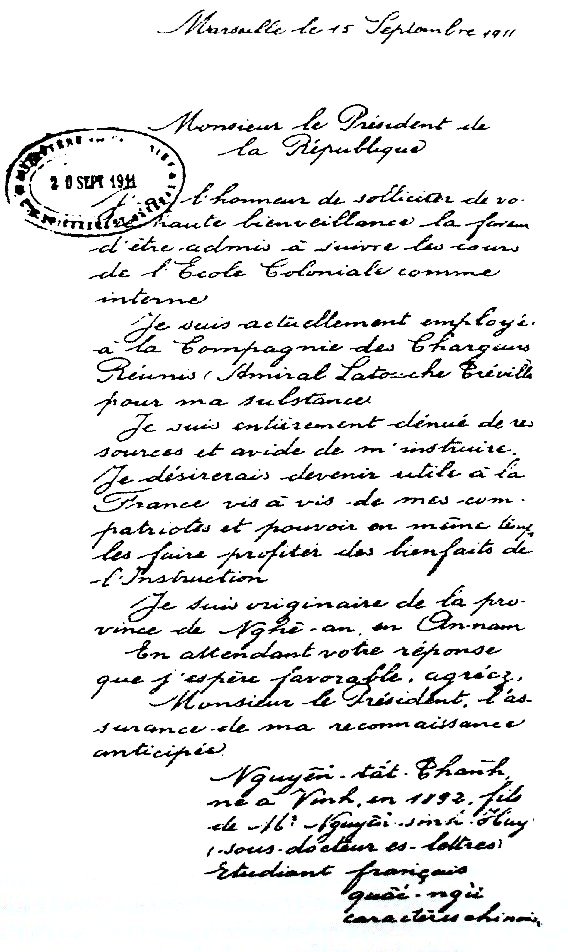 Marseille le 15 Septembre 1911
Monsieur le Président de
la République
20 SEPT 1911
l'honneur de solliciter de vo-
haute bienveillance la faveur
d'être admis à suivre les cours
de l'Ecole Coloniale comme
interne
Je suis actuellement employé
à la Compagnie des Chargeurs
Réunis (Amiral Latouche Tréville
pour ma substance
Je suis entièrement dénué de res
sources et avide de m'instruire.
Je désirerais devenir utile à la
France vis à vis de mes com-
patriotes et pouvoir en même temps
les faire profiter des bienfaits de
l'Instruction
Je suis originaire de la pro-
vince de Nghê-an, en An-nam
En attendant votre réponse
que j'espère favorable, agréez,
Monsieur le Président, l'as-
surance de ma reconnaissance
anticipée
Nguyên-tât-Thanh,
né à Vinh, en 1892, fils
de Mr Nguyên-sinh-Huy
(sous-docteur es-lettres)
Etudiant français
quâi-ngü
caractères chinois